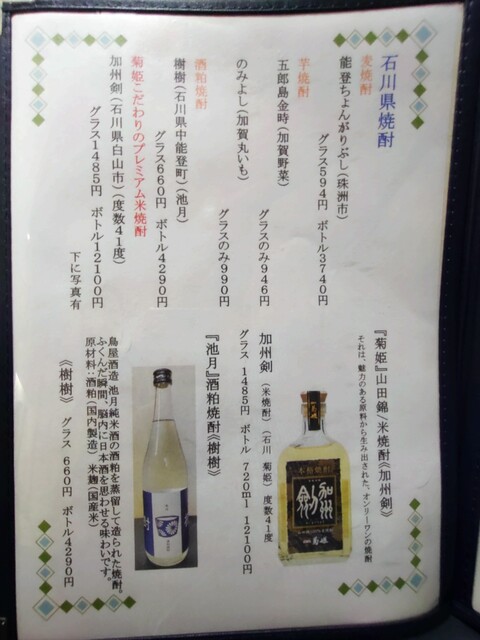 石川県焼酎
麦焼酎
能登ちょんがりぶし(珠洲市)
グラス594円 ボトル3740円
芋焼酎
五郎島金時(加賀野菜)
グラスのみ946円
のみよし(加賀丸いも)
グラスのみ990円
酒粕焼酎
樹樹(石川県中能登町)(池月)
グラス660円 ボトル4290円
菊姫こだわりのプレミアム米焼酎
加州剣(石川県白山市)(度数41度)
グラス1485円 ボトル12100円
下に写真有
『菊姫』山田錦/米焼酎《加州剣》
それは、魅力のある原料から生み出された、オンリーワンの焼酎
加州剣 (米焼酎) (石川 菊姫) 度数41度
グラス 1485円 ボトル 720ml 12100円
本格焼酎
加州
剣
菊姫
『池月』酒粕焼酎《樹樹》
鳥屋酒造 池月純米酒の酒粕を蒸留して造られた焼酎。
ふくんだ瞬間、脳内に日本酒を思わせる味わいです。
原材料:酒粕(国内製造) 米麹(国産米)
《樹樹》 グラス 660円 ボトル4290円